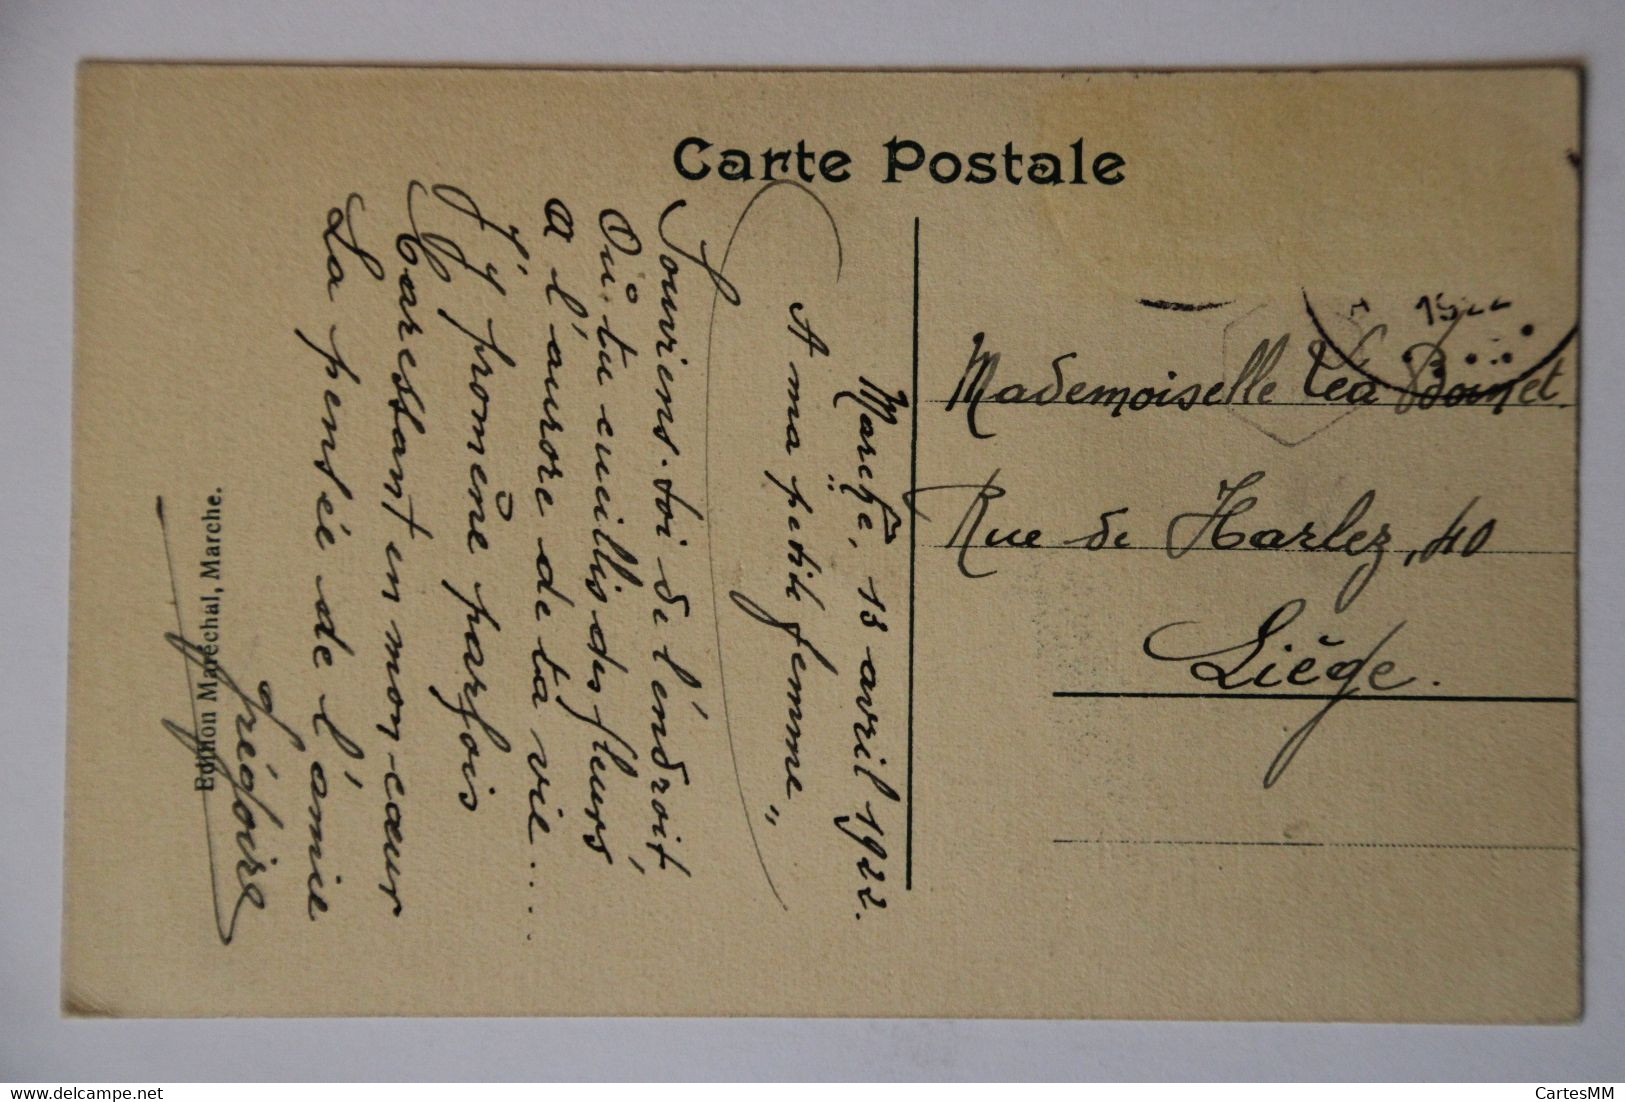 Carte Postale
Marche, 13 avril 1922.
A ma petite femme "
Souviens-toi de l'endroit,
Où tu cueillis des fleurs,
A l'aurore de ta vie....
J'y promène parfois
Caressant en mon cœur
La pensée de l'amie
Grégoire
Edition Maréchal, Marche.
1922
Mademoiselle Léa
Rue de Harlez, 40
Liège.
delcampe.net
CartesMM